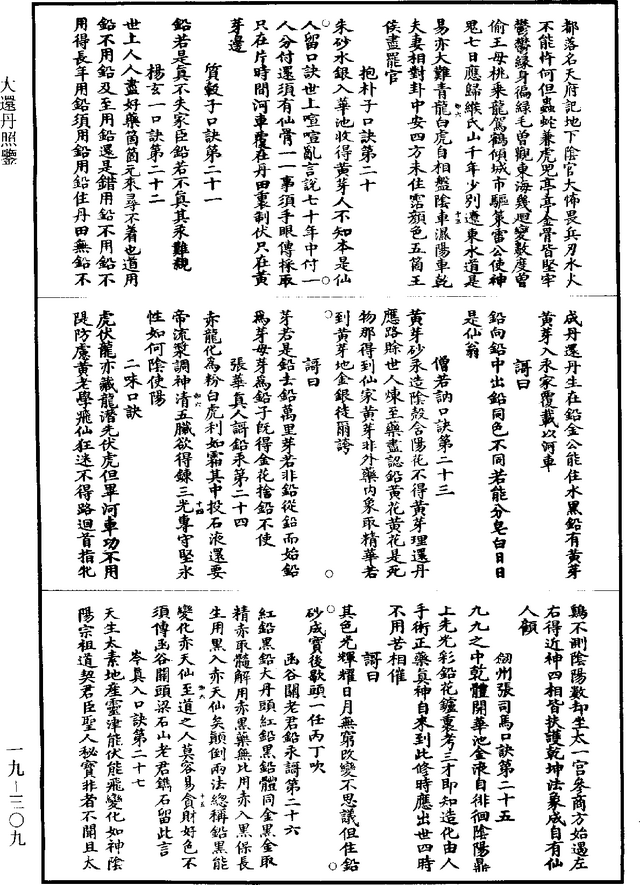 都落名天府記地下陰官大怖畏兵刃水火
不能忤何但蟲蛇兼虎兕亭亭金骨皆堅牢
鬱鬱綠身徧綠毛曾觀東海幾迴變數度曾
偷王母桃乘龍駕鶴傾城市驅策雷公使神
鬼七日應歸緱氏山千年少別遷東水道是
易亦大難青龍白虎自相盤陰車濕陽車乾
夫妻相對卦中安四方未住露顏色五箇王
侯盡罷官
抱朴子口訣第二十
朱砂水銀入華池收得黃芽人不知本是仙
人留口訣世上喧喧亂言說七十年中付一
人分付還須有仙骨一一事須手眼傳採取
只在片時間河車覆在丹田裏制伏只在黃
芽邊
質轂子口訣第二十一
鉛若是真不失家臣鉛若不真其汞難親
楊玄一口訣第二十二
世上人人盡好藥箇箇元來尋不着也道用
鉛不用鉛及至用鉛還是錯用鉛不用鉛不
用得長年用鉛須用鉛用鉛住丹田無鉛不
成丹還丹生在鉛金公能住水黑鉛有黃芽
黃芽入汞家覆載以河車
謌曰
鉛向鉛中出鉛同色不同若能分皂白日日
是仙翁
僧若訥口訣第二十三
黃芽砂汞造陰殼含陽花不得黃芽理還丹
應路賒世人煉至藥盡認鉛黃花黃花是死
物那得到仙家黃芽非外藥內象取精華若
到黃芽地金銀徒爾誇
謌曰
芽若是鉛去鉛萬里芽若非鉛從鉛而始鉛
為芽母芽為鉛子既得金花捨鉛不使
張華真人謌鉛汞第二十四
赤龍化為粉白虎利如霜其中投石液還要
帝流漿調神清五臟欲得鍊三光專守堅永
性如何陰使陽
二味口訣
虎伏龍亦藏龍潛先伏虎但畢河車功不用
隄防慮黃老學飛仙狂迷不得路迴首指牝
鷄不測陰陽數却坐太一宮參商方始遇左
右得近神四相皆扶護乾坤法象成自有仙
人顧
劒州張司馬口訣第二十五
九九之中乾體開華池金液自徘徊陰陽鼎
上先光彩鉛花鑪裏考三才即知造化由人
手術正藥真神自來到此修時應出世四時
不用苦相催
謌曰
其色光輝耀日月無窮改變不思議但住鉛
砂成寶後歇頭一任丙丁吹
函谷關老君鉛汞謌第二十六
紅鉛黑鉛大丹頭紅鉛黑鉛體同金黑金取
精赤取髓解用赤黑藥無比用赤入黑保長
生用黑入赤天仙矣顛倒兩法總稱鉛黑能
變化赤天仙至道之人莫容易貪財好色不
須傳函谷關頭梁石山老君鐫石留此言
岑真人口訣第二十七
天生太素地產靈津能伏能飛變化如神陰
陽宗祖道契君臣聖人秘寶非者不開且太
大還丹照鑒
一九—三〇九